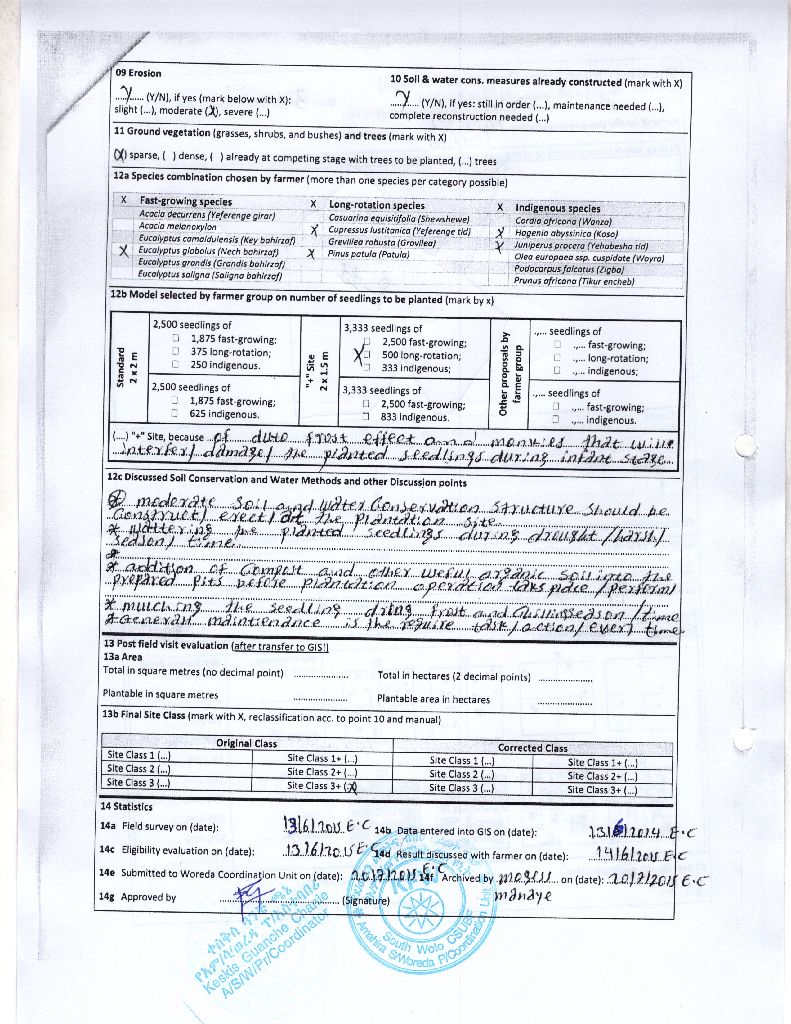 09 Erosion
Y (Y/N), if yes (mark below with X):
slight (...), moderate (X), severe (...)
10 Soil & water cons. measures already constructed (mark with X)
Y (Y/N), if yes: still in order (...), maintenance needed (...),
complete reconstruction needed (...)
11 Ground vegetation (grasses, shrubs, and bushes) and trees (mark with X)
(X) sparse, ( ) dense, ( ) already at competing stage with trees to be planted, (...) trees
12a Species combination chosen by farmer (more than one species per category possible)
X Fast-growing species X Long-rotation species X Indigenous species
Acacia decurrens (Yeferenge girar)
Acacia melanoxylon
Eucalyptus camaldulensis (Key bahirzaf)
X Eucalyptus globulus (Nech bahirzaf)
Eucalyptus grandis (Grandis bahirzaf)
Eucalyptus saligna (Saligna bahirzaf)
Casuarina equisitifolia (Shewshewe)
X Cupressus lustitanica (Yeferenge tid)
Grevillea robusta (Grovilea)
X Pinus patula (Patula)
Cordia africana (Wanza)
X Hagenia abyssinica (Koso)
X Juniperus procera (Yehabesha tid)
Olea europaea ssp. cuspidate (Woyra)
Podocarpus falcatus (Zigba)
Prunus africana (Tikur encheb)
12b Model selected by farmer group on number of seedlings to be planted (mark by x)
Standard
2 x 2 m
2,500 seedlings of
1,875 fast-growing;
375 long-rotation;
250 indigenous.
2,500 seedlings of
1,875 fast-growing;
625 indigenous.
"+" Site
2 x 1.5 m
3,333 seedlings of
2,500 fast-growing;
X 500 long-rotation;
333 indigenous;
3,333 seedlings of
2,500 fast-growing;
833 indigenous.
Other proposals by
farmer group
.,... seedlings of
.,... fast-growing;
.,... long-rotation;
.,... indigenous;
.,... seedlings of
.,... fast-growing;
.,... indigenous.
(...) "+" Site, because of frost effect and that will
damage/ the planted seedlings during infant stage
12c Discussed Soil Conservation and Water Methods and other Discussion points
moderate Soil and water Conservation Structure should be
Construct/ erect/ at the Plantation site
* wattering the planted seedlings during drought /harsh/
season/ time
*
* addition of Compost and other useful organic soil into the
prepared pits before plantation operation take place / perform/
* mulching the seedling and season / time
* Generall maintienance is the require task/ action/ every time
13 Post field visit evaluation (after transfer to GIS!)
13a Area
Total in square metres (no decimal point) ............ Total in hectares (2 decimal points) ............
Plantable in square metres ............ Plantable area in hectares ............
13b Final Site Class (mark with X, reclassification acc. to point 10 and manual)
Original Class Corrected Class
Site Class 1 (...) Site Class 1+ (...) Site Class 1 (...) Site Class 1+ (...)
Site Class 2 (...) Site Class 2+ (...) Site Class 2 (...) Site Class 2+ (...)
Site Class 3 (...) Site Class 3+ (X) Site Class 3 (...) Site Class 3+ (...)
14 Statistics
14a Field survey on (date): 13/6/2015 E.C 14b Data entered into GIS on (date): 13/6/2014 E.C
14c Eligibility evaluation on (date): 13/6/2015 E.C 14d Result discussed with farmer on (date): 14/6/2015 E.C
14e Submitted to Woreda Coordination Unit on (date): 20/7/2015 E.C 14f Archived by on (date): 20/7/2015 E.C
14g Approved by (Signature)
Keskis Guanche Chanie
A/S/W/Pr/Coordinator
South Wolo CSU
Amahira S/Woreda P/Coordination Unit